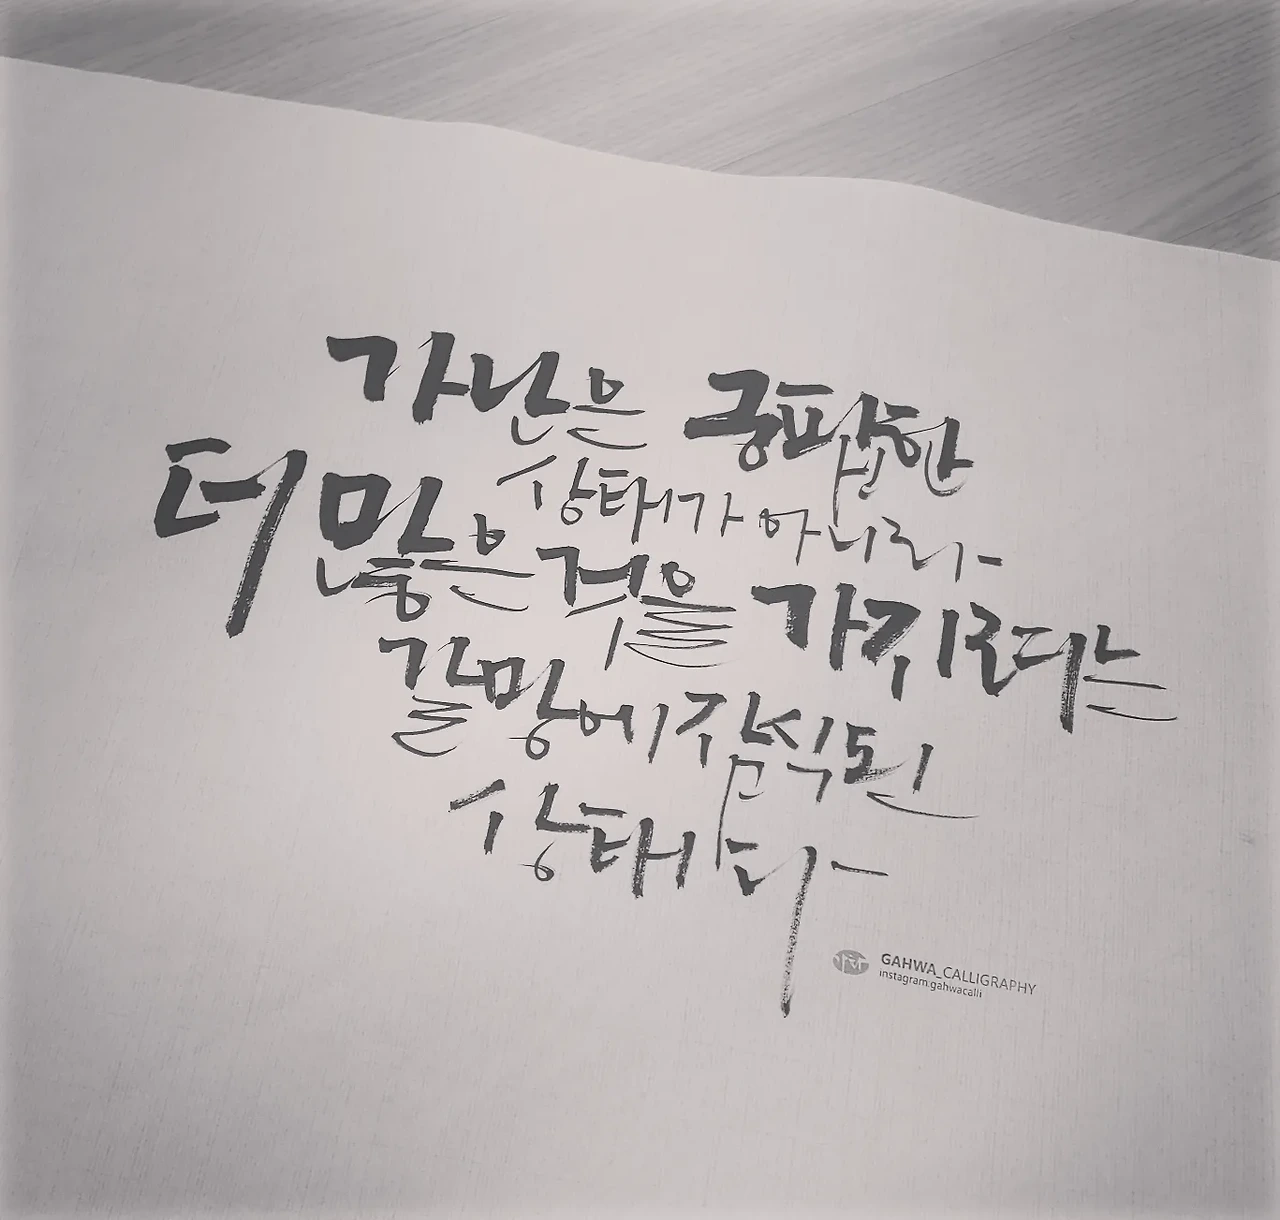 가난은 궁핍한
상태가 아니라
더 많은 것을 가지려다는
갈망에 잠식된
상태이다
GAHWA_CALLIGRAPHY
instagram.gahwacalli